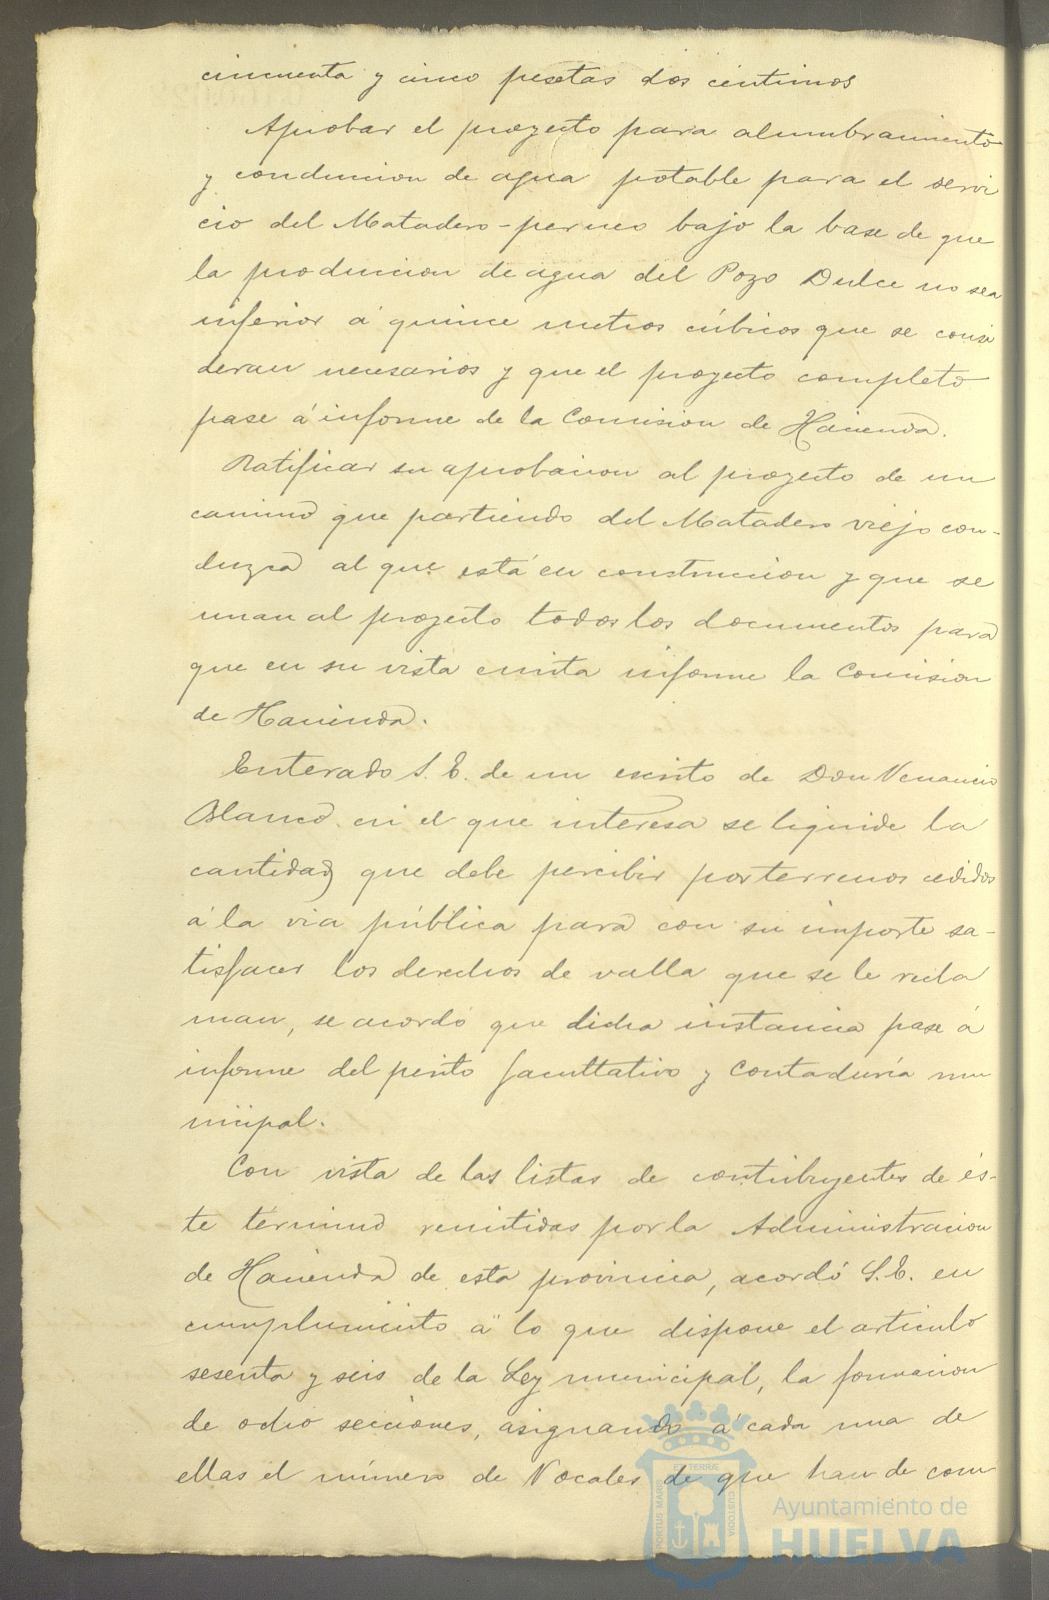 cincuenta y cinco pesetas dos centimos
Aprobar el proyecto para alumbramiento
y conduccion de agua potable para el servi
cio del Matadero - perneo bajo la base de que
la produccion de agua del Pozo Dulce no sea
inferior á quince metros cúbicos que se consi
deran necesarios y que el proyecto completo
pase á informe de la Comision de Hacienda.
Ratificar su aprobacion al proyecto de un
camino que partiendo del Matadero viejo con-
duzca al que está en construccion y que se
unan al proyecto todos los documentos para
que en su vista emita informe la Comision
de Hacienda.
Enterado S. E. de un escrito de Don Venancio
Blanco en el que interesa se liquide la
cantidad que debe percibir por terrenos cedidos
á la via pública para con su importe sa-
tisfacer los derechos de valla que se le recla
man, se acordó que dicha instancia pase á
informe del perito facultativo y Contaduría mu
nicipal.
Con vista de las listas de contribuyentes de és-
te término remitidas por la Administracion
de Hacienda de esta provincia, acordó S. E. en
cumplimiento á lo que dispone el articulo
sesenta y seis de la Ley municipal, la formacion
de ocho secciones, asignando á cada una de
ellas el número de Vocales de que han de com
PORTUS MARIS ET TERRÆ CUSTODIA
Ayuntamiento de
HUELVA